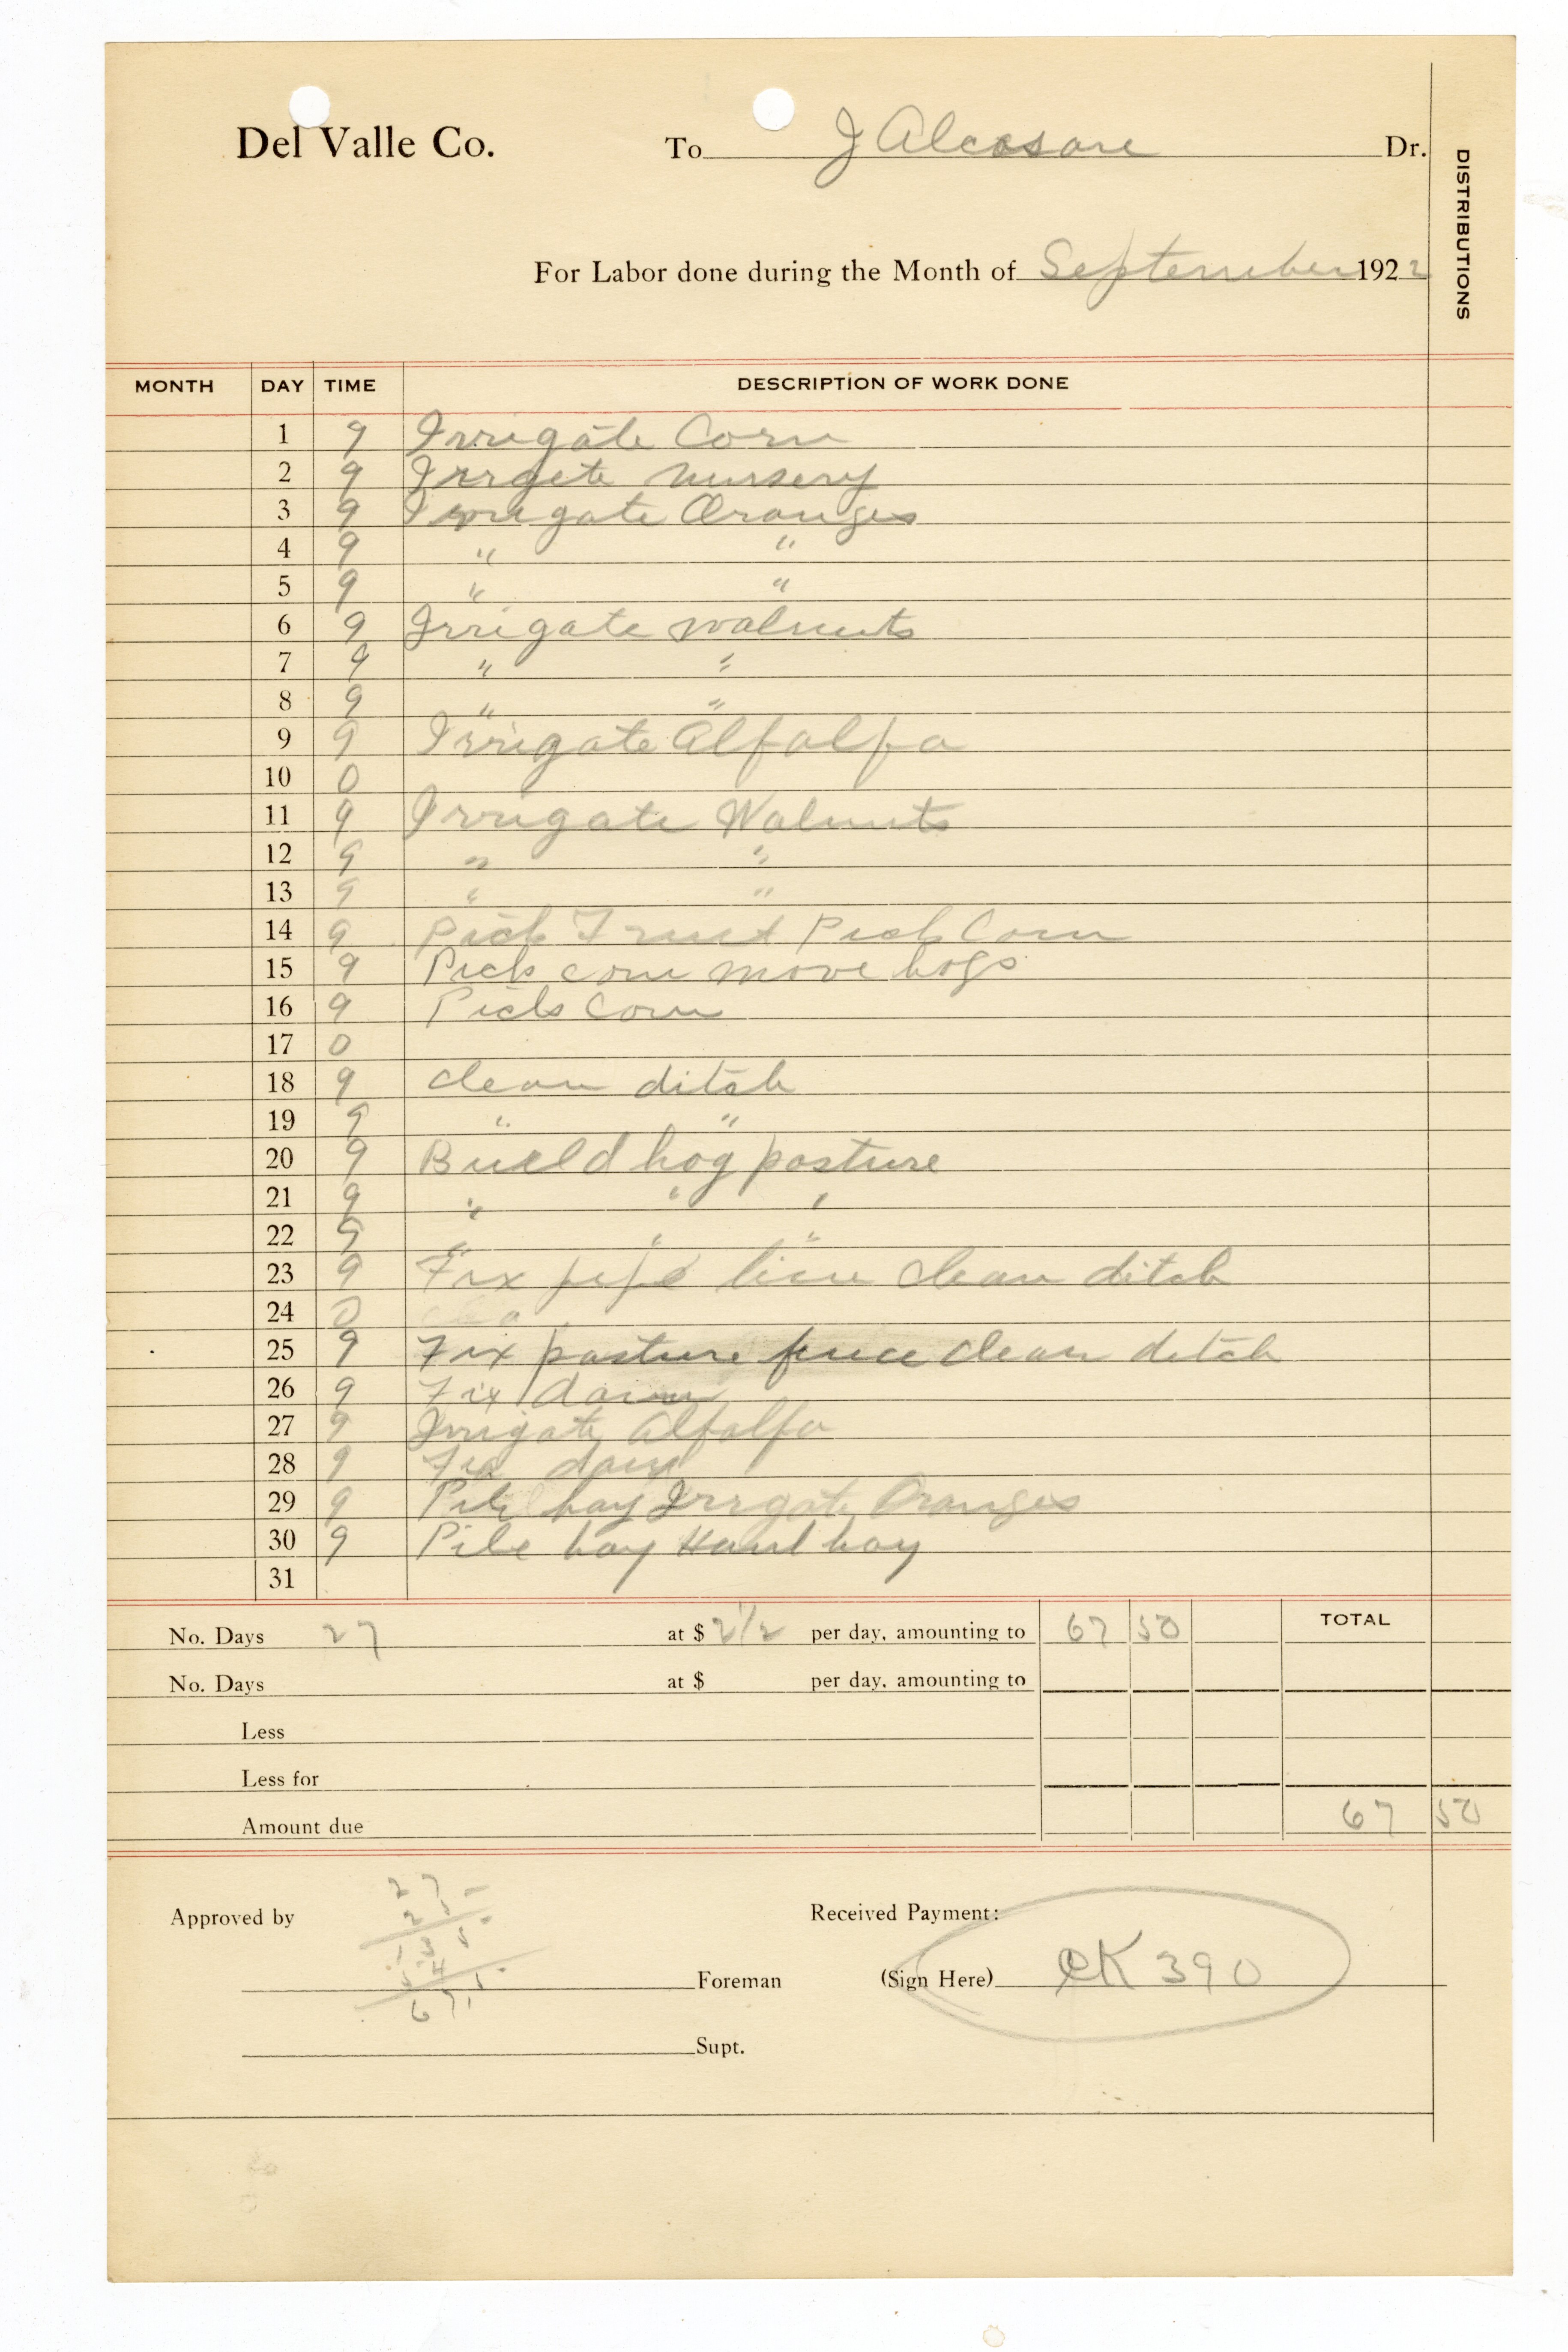 Del Valle Co. To J Alcasare Dr.
DISTRIBUTIONS
For Labor done during the Month of September 1922
MONTH DAY TIME DESCRIPTION OF WORK DONE
1 9 Irrigate Corn
2 9 Irrgete nursery
3 9 Irrigate Oranges
4 9 " "
5 9 " "
6 9 Irrigate walnuts
7 9 " "
8 9 " "
9 9 Irrigate Alfalfa
10 0
11 9 Irrigate Walnuts
12 9 " "
13 9 " "
14 9 Pick Fruit Pick Corn
15 9 Pick corn move hogs
16 9 Pick Corn
17 0
18 9 clean ditch
19 9 " "
20 9 Build hog pasture
21 9 " " "
22 9 " " "
23 9 Fix pipe line clean ditch
24 0
25 9 Fix pasture fence clean ditch
26 9 Fix dam
27 9 Irrigate Alfalfa
28 9 Fix dam
29 9 Pile hay Irrgate Oranges
30 9 Pile hay Haul hay
31
No. Days 27 at $ 2 1/2 per day, amounting to 67 50 TOTAL
No. Days at $ per day, amounting to
Less
Less for
Amount due 67 50
27
2 5
1 3 5
5 4
67 5
Approved by Received Payment:
Foreman (Sign Here) CK 390
Supt.